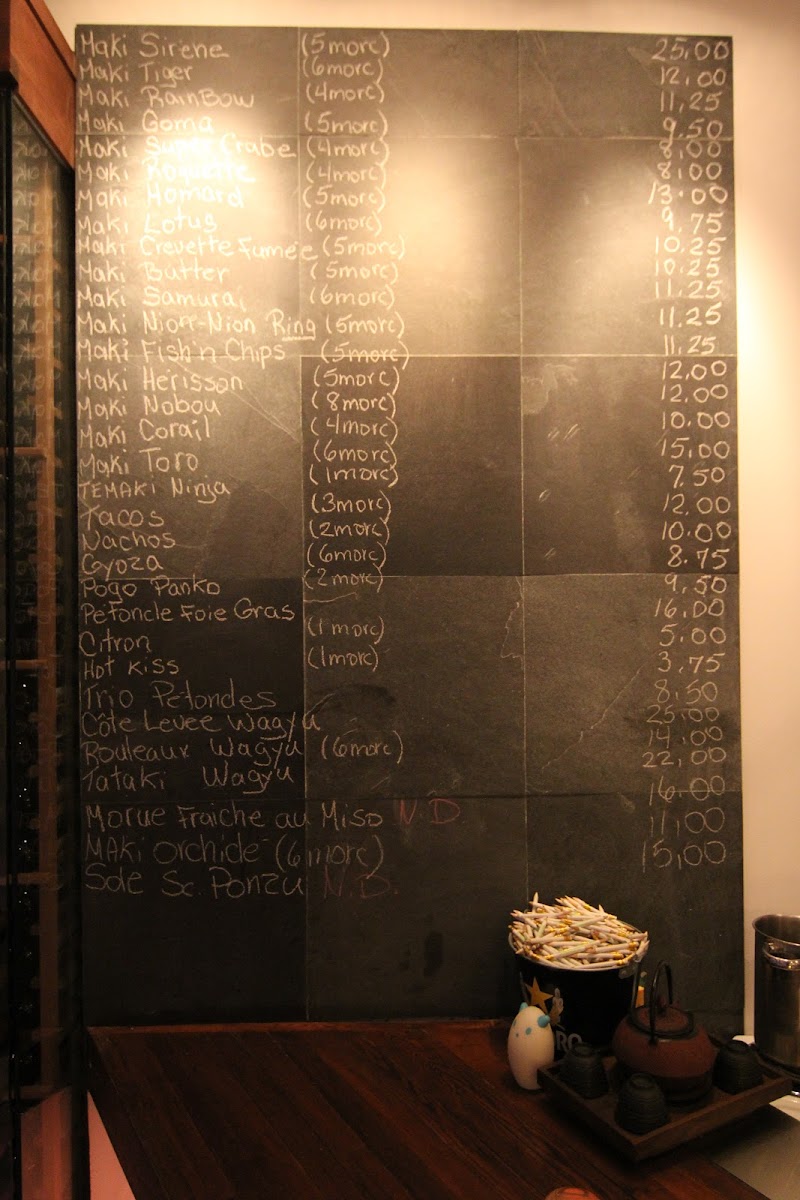 Maki Sirène (5morc) 25,00
Maki Tiger (6morc) 12,00
Maki RainBow (4morc) 11,25
Maki Goma (5morc) 9,50
Maki Super Crabe (4morc) 8,00
Maki Roquette (4morc) 8,00
Maki Homard (5morc) 13,00
Maki Lotus (6morc) 9,75
Maki Crevette Fumée (5morc) 10,25
Maki Butter (5morc) 10,25
Maki Samurai (6morc) 11,25
Maki Nion-Nion Ring (5morc) 11,25
Maki Fish'n Chips (5morc) 11,25
Maki Herisson (5morc) 12,00
Maki Nobou (8morc) 12,00
Maki Corail (4morc) 10,00
Maki Toro (6morc) 15,00
TEMAKI Ninja (1morc) 7,50
Tacos (3morc) 12,00
Nachos (2morc) 10,00
Gyoza (6morc) 8,75
Pogo Panko (2morc) 9,50
Petoncle Foie Gras 16,00
Citron (1morc) 5,00
Hot Kiss (1morc) 3,75
Trio Petoncles 8,50
Côte Levee Wagyu 25,00
Rouleaux Wagyu (6morc) 14,00
Tataki Wagyu 22,00
Morue Fraiche au Miso N.D. 16,00
MAKi orchidé (6morc) 11,00
Sole Sc. Ponzu N.D. 15,00